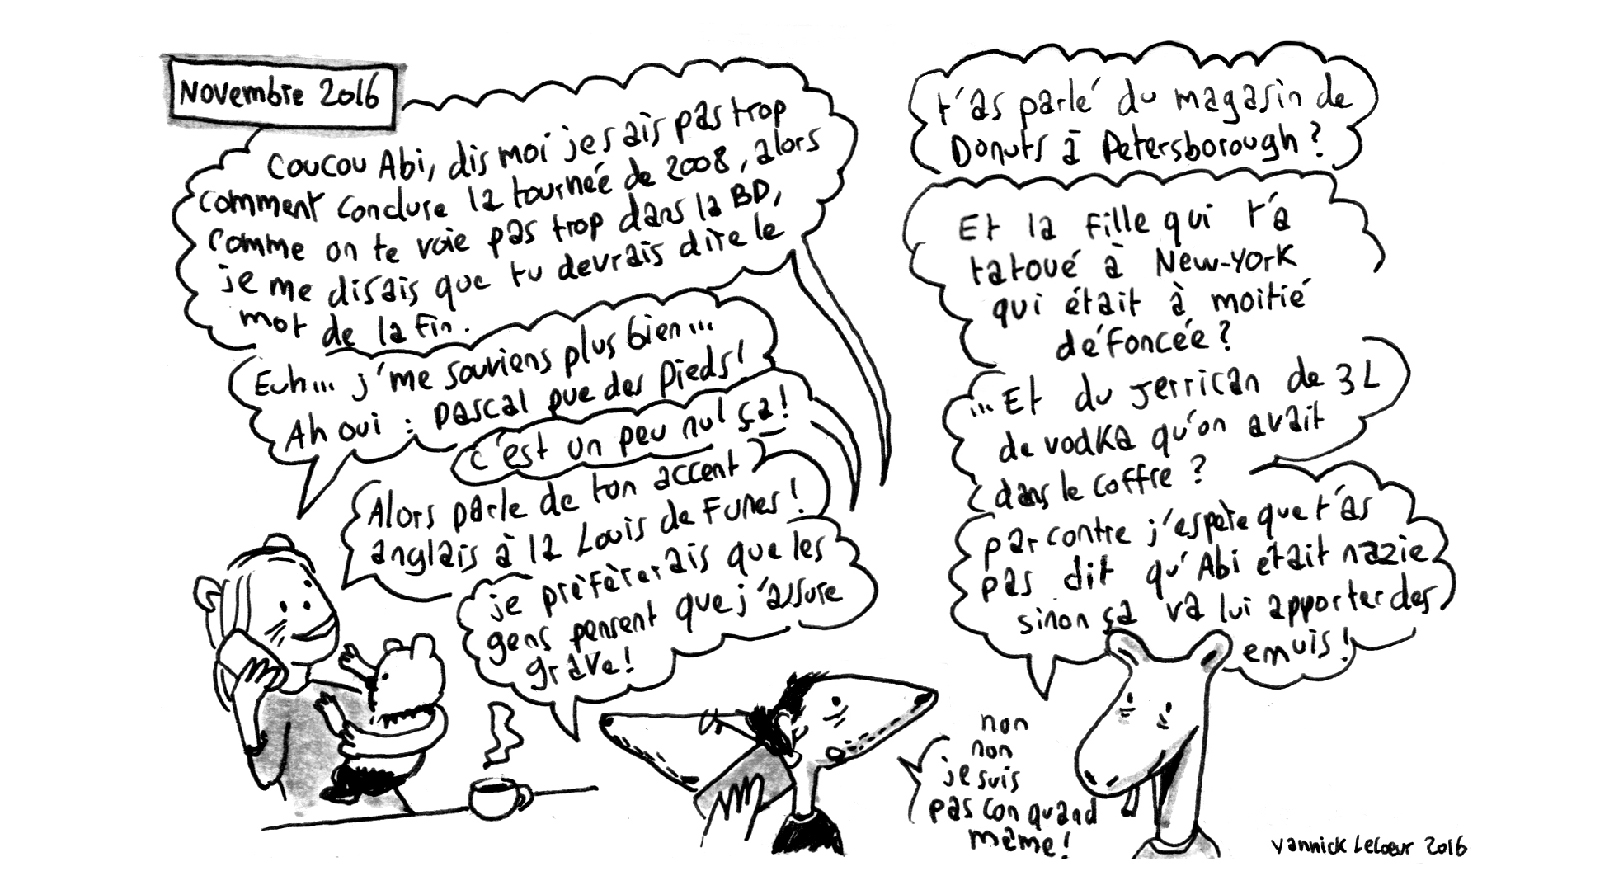 Novembre 2016
Coucou Abi, dis moi je sais pas trop
comment conclure la tournée de 2008, alors
comme on te voie pas trop dans la BD,
je me disais que tu devrais dire le
mot de la fin.
Euh... j'me souviens plus bien...
Ah oui : Pascal pue des pieds!
C'est un peu nul ça!
Alors parle de ton accent
anglais à la Louis de Funes!
je préfèrerais que les
gens pensent que j'assure
grâve!
t'as parlé du magasin de
Donuts à Petersborough?
Et la fille qui t'a
tatoué à New-York
qui était à moitié
défoncée?
...Et du jerrican de 3L
de vodka qu'on avait
dans le coffre?
par contre j'espère que t'as
pas dit qu'Abi était nazie
sinon ça va lui apporter des
emuis!
non
non
je suis
pas con quand
même!
Yannick Lecoeur 2016